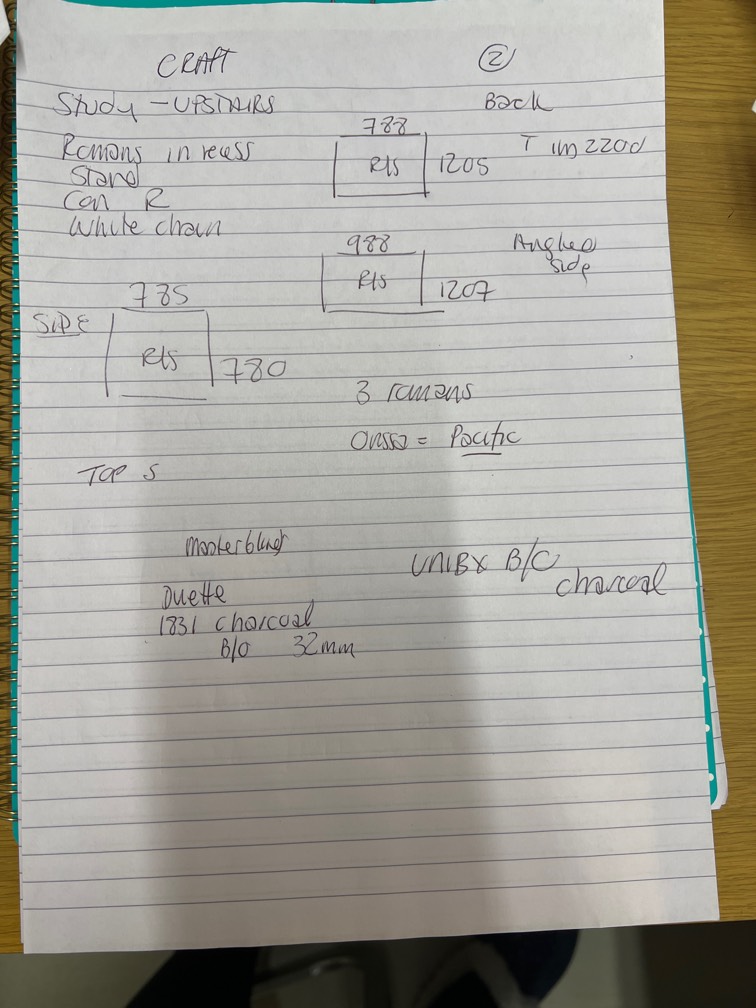 CRAFT
②
Study - UPSTAIRS
Back
788
Romans in recess
R/S
1205
Stand
Con R
White chain
988
Angled
side
R/S
1207
785
SIDE
R/S
780
3 romans
= Pacific
TOP S
Masterblind
UNIBX B/C
charcoal
Duette
1831 charcoal
B/O 32mm